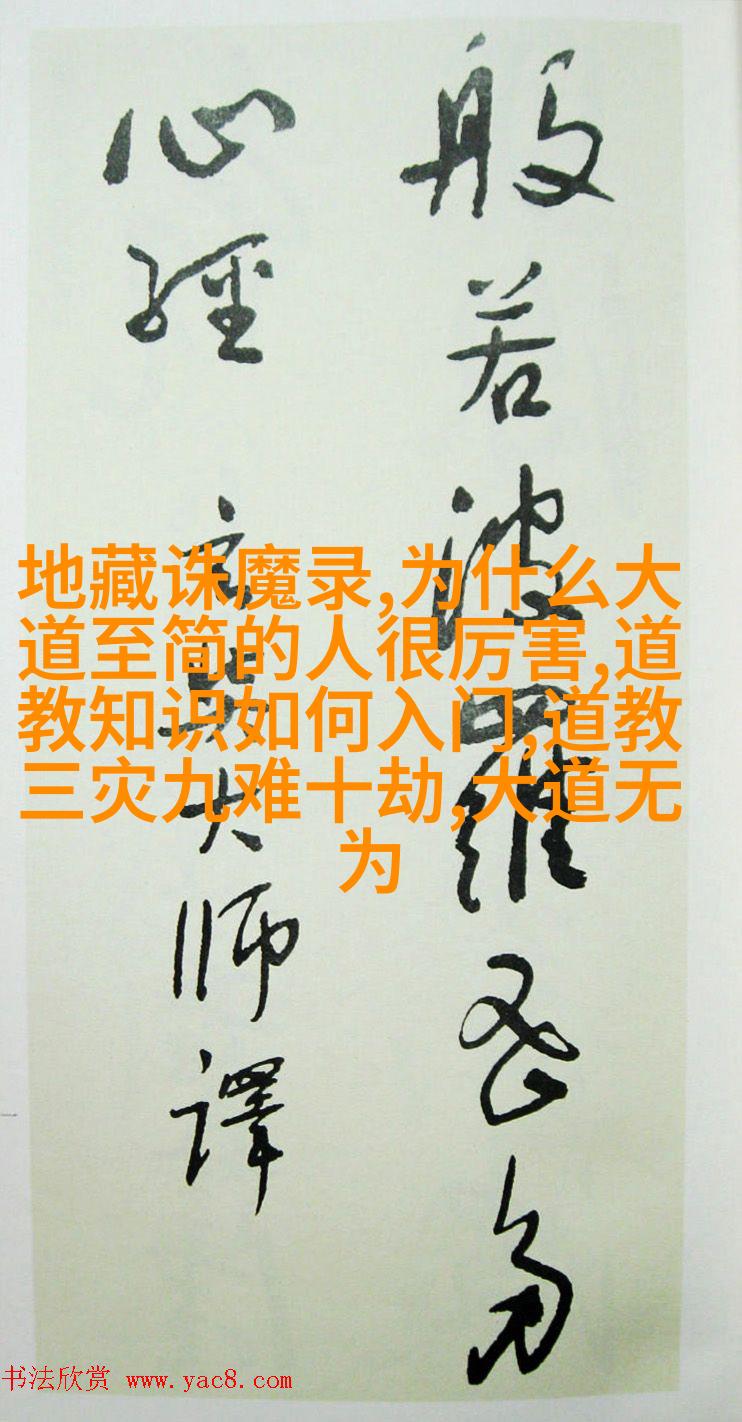 般若波羅密多
心經 玄奘大師譯
地藏诛魔录,为什么大
道至简的人很厉害,道
教知识如何入门,道教
三灾九难十劫,大道无
为
书法欣赏 www.yac8.com